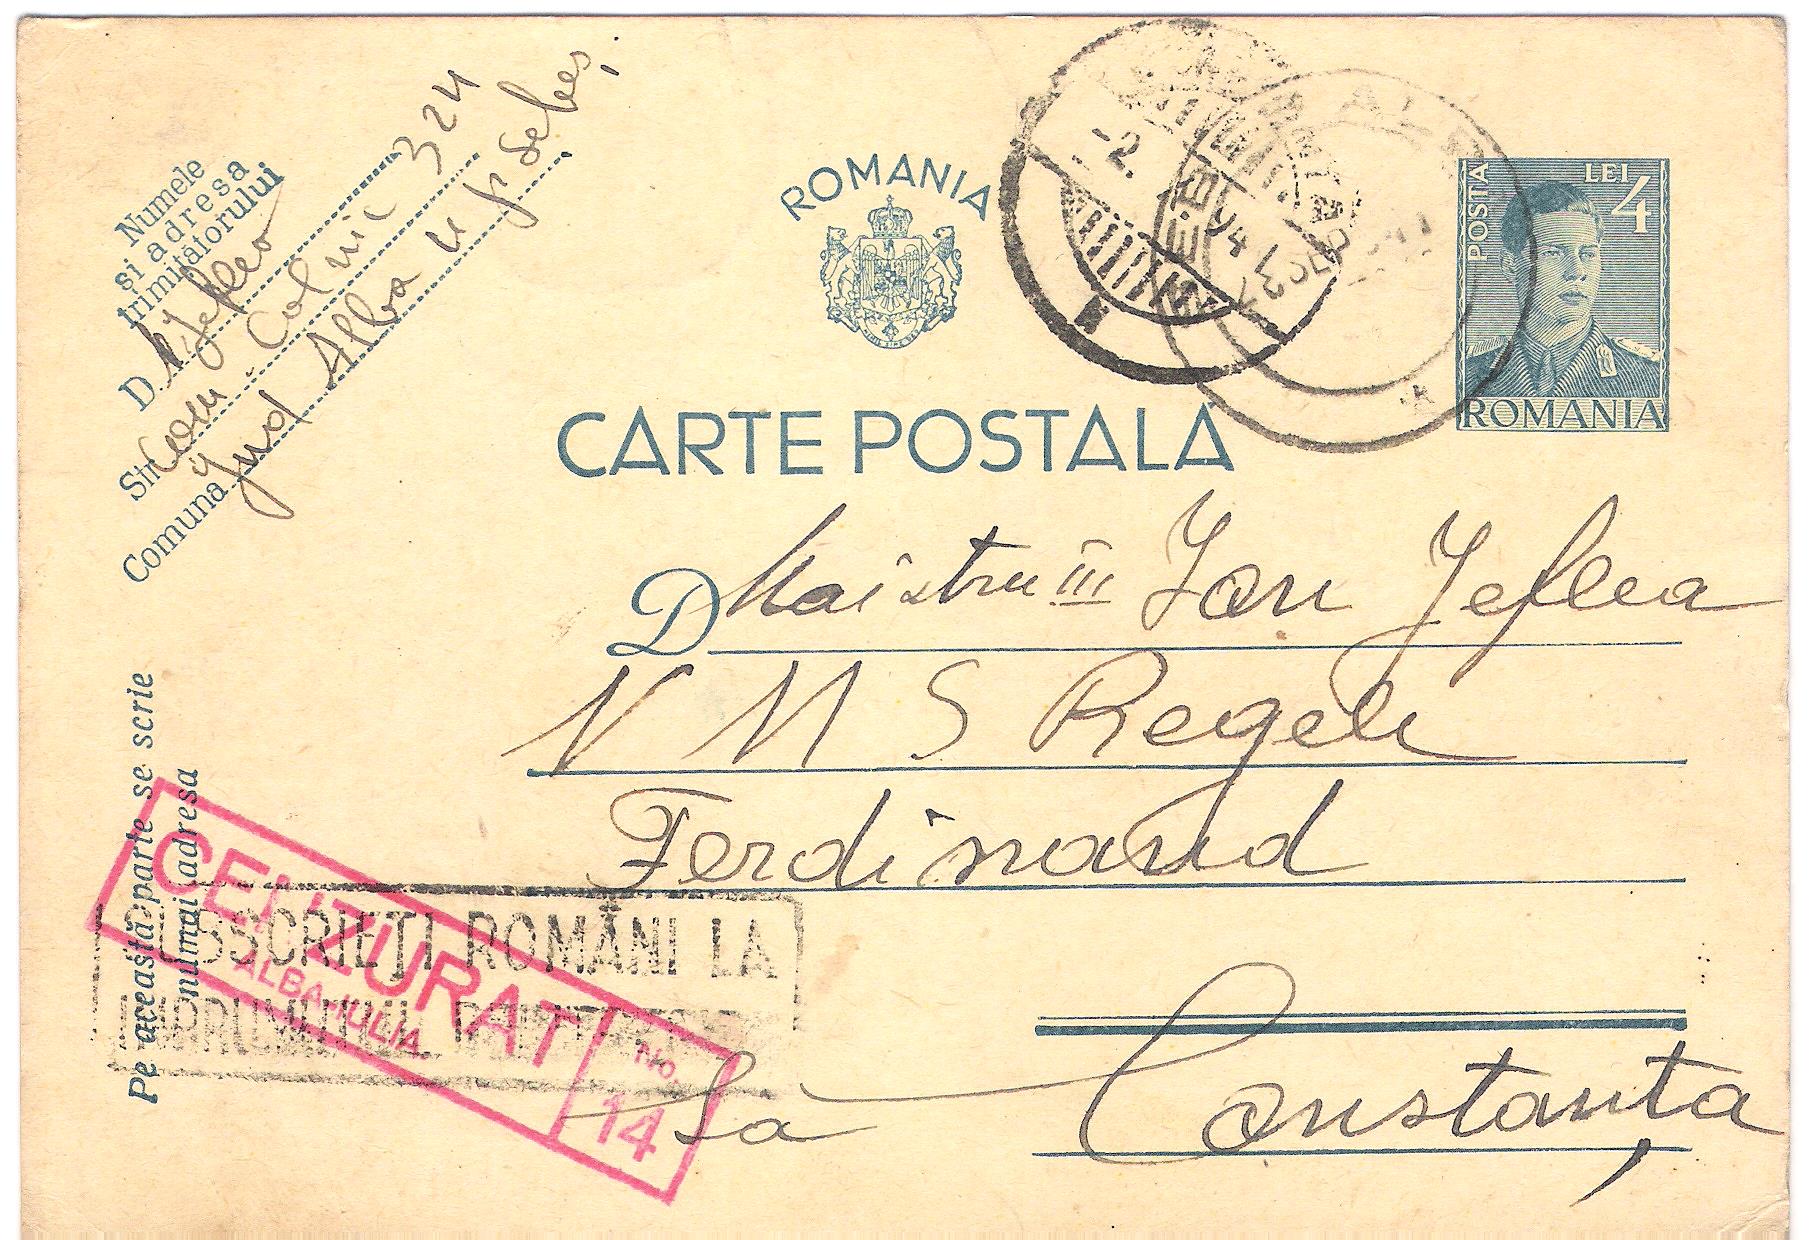 Numele
si adresa
trimitătorului
D. Jeflea
Str. Com Colnic 324
Comuna Jud Alba u p sebeș
ROMANIA
POSTA
LEI 4
ROMANIA
CARTE POSTALA
D Maistru III Ion Jeflea
N M S Regele
Ferdinand
La Constanța
Pe această parte se scrie
numai adresa
CENZURAT
ALBA-IULIA
No.
14
SUBSCRIEȚI ROMÂNI LA
ÎMPRUMUTUL